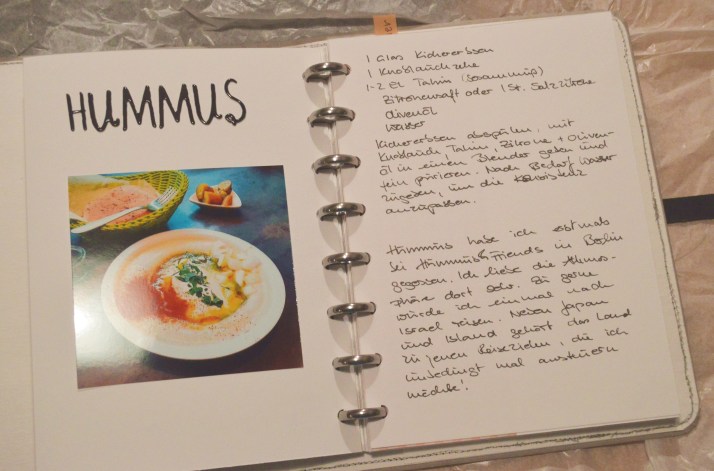 HUMMUS
1 Glas Kichererbsen
1 Knoblauchzehe
1-2 EL Tahin (Sesammuß)
Zitronensaft oder 1 St. Salzzitrone
Olivenöl
Wasser
Kichererbsen abspülen, mit
Knoblauch, Tahin, Zitrone + Oliven-
öl in einen Blender geben und
fein pürieren. Nach Bedarf Wasser
zugeben, um die Konsistenz
anzupassen.
Hummus habe ich erstmals
bei Hummus & Friends in Berlin
gegessen. Ich liebe die Atmos-
phäre dort sehr. Zu gerne
würde ich einmal nach
Israel reisen. Neben Japan
und Island gehört das Land
zu jenen Reisezielen, die ich
unbedingt mal ansteuern
möchte!